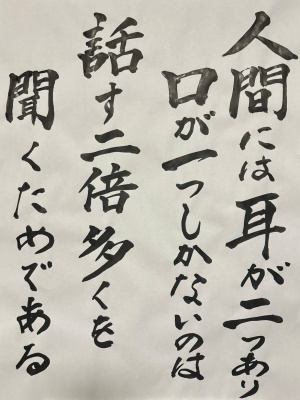 人間には耳が二つあり
口が一つしかないのは
話す二倍多くを
聞くためである